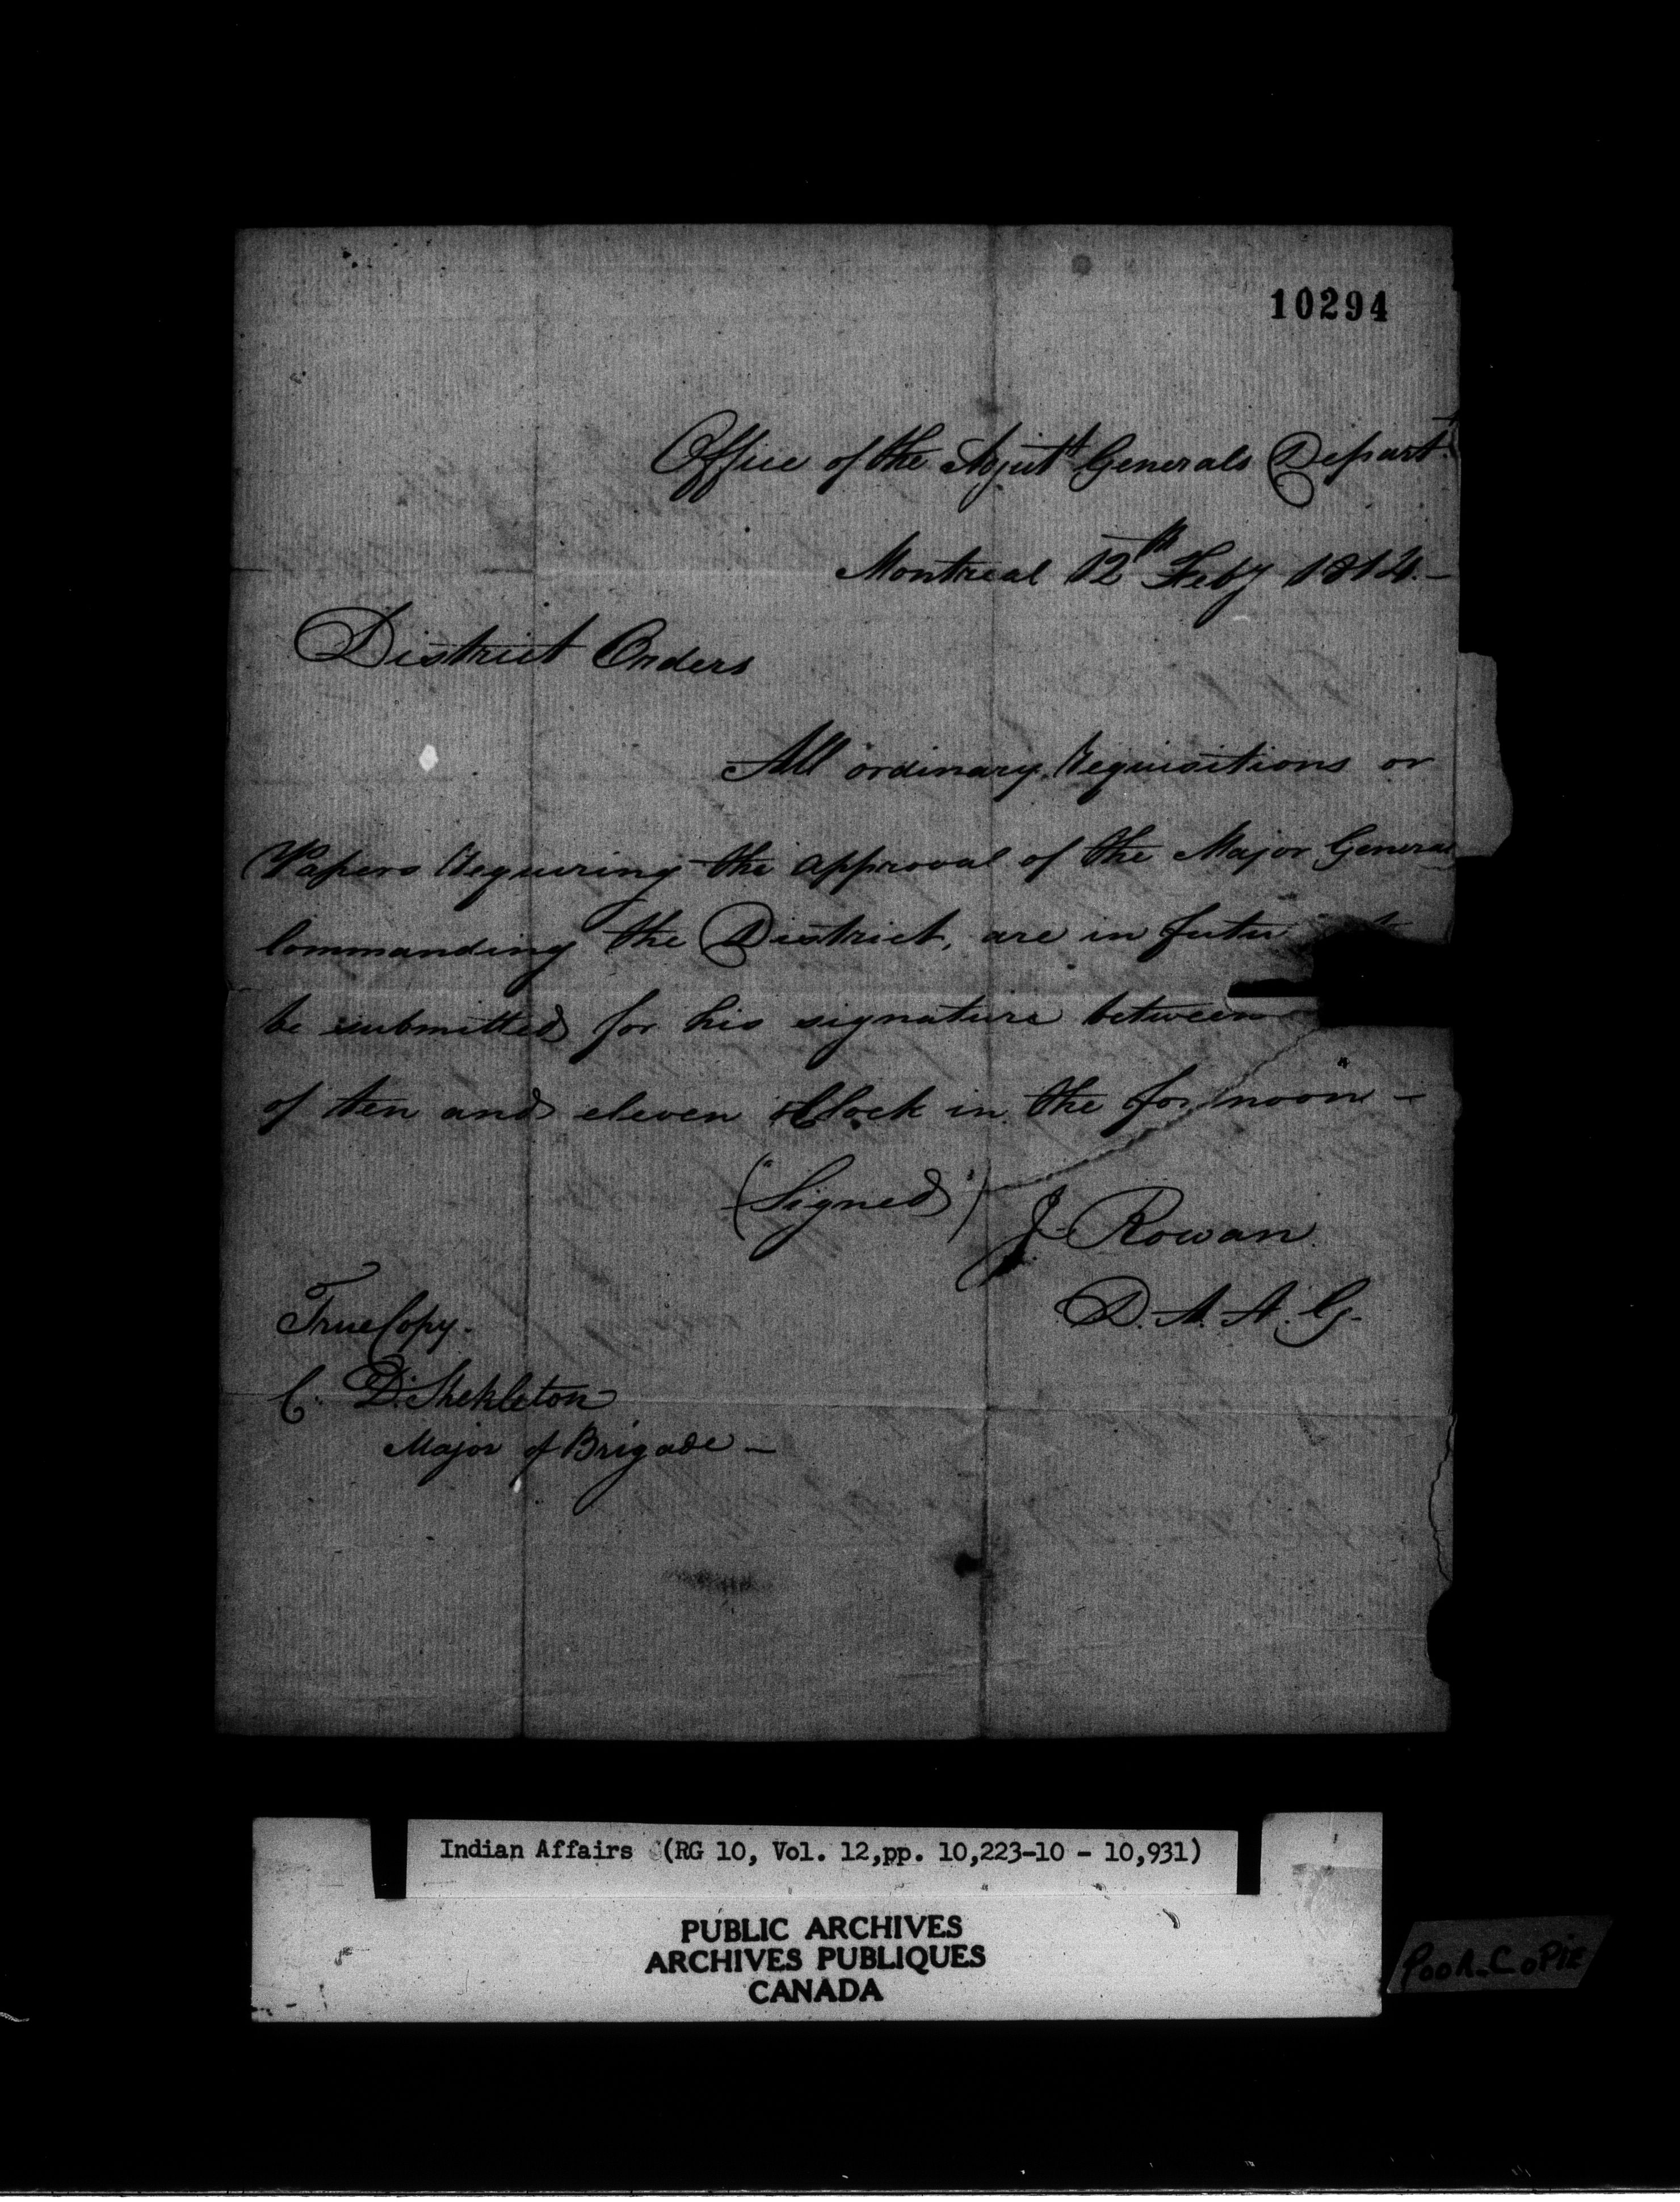 10294
Office of the Adjut.t Generals Depart.t
Montreal 12th Feby 1814.-
District Orders
All ordinary Requisitions or
Papers Requiring the approval of the Major General
Commanding the District, are in futu
be submitted for his signature between
of ten and eleven oClock in the forenoon -
("Signed") J. Rowan
D. A. A. G.
True Copy.
C. D. Shekleton
Major of Brigade -
Indian Affairs (RG 10, Vol. 12,pp. 10,223-10 - 10,931)
PUBLIC ARCHIVES
ARCHIVES PUBLIQUES
CANADA
POOR COPIE